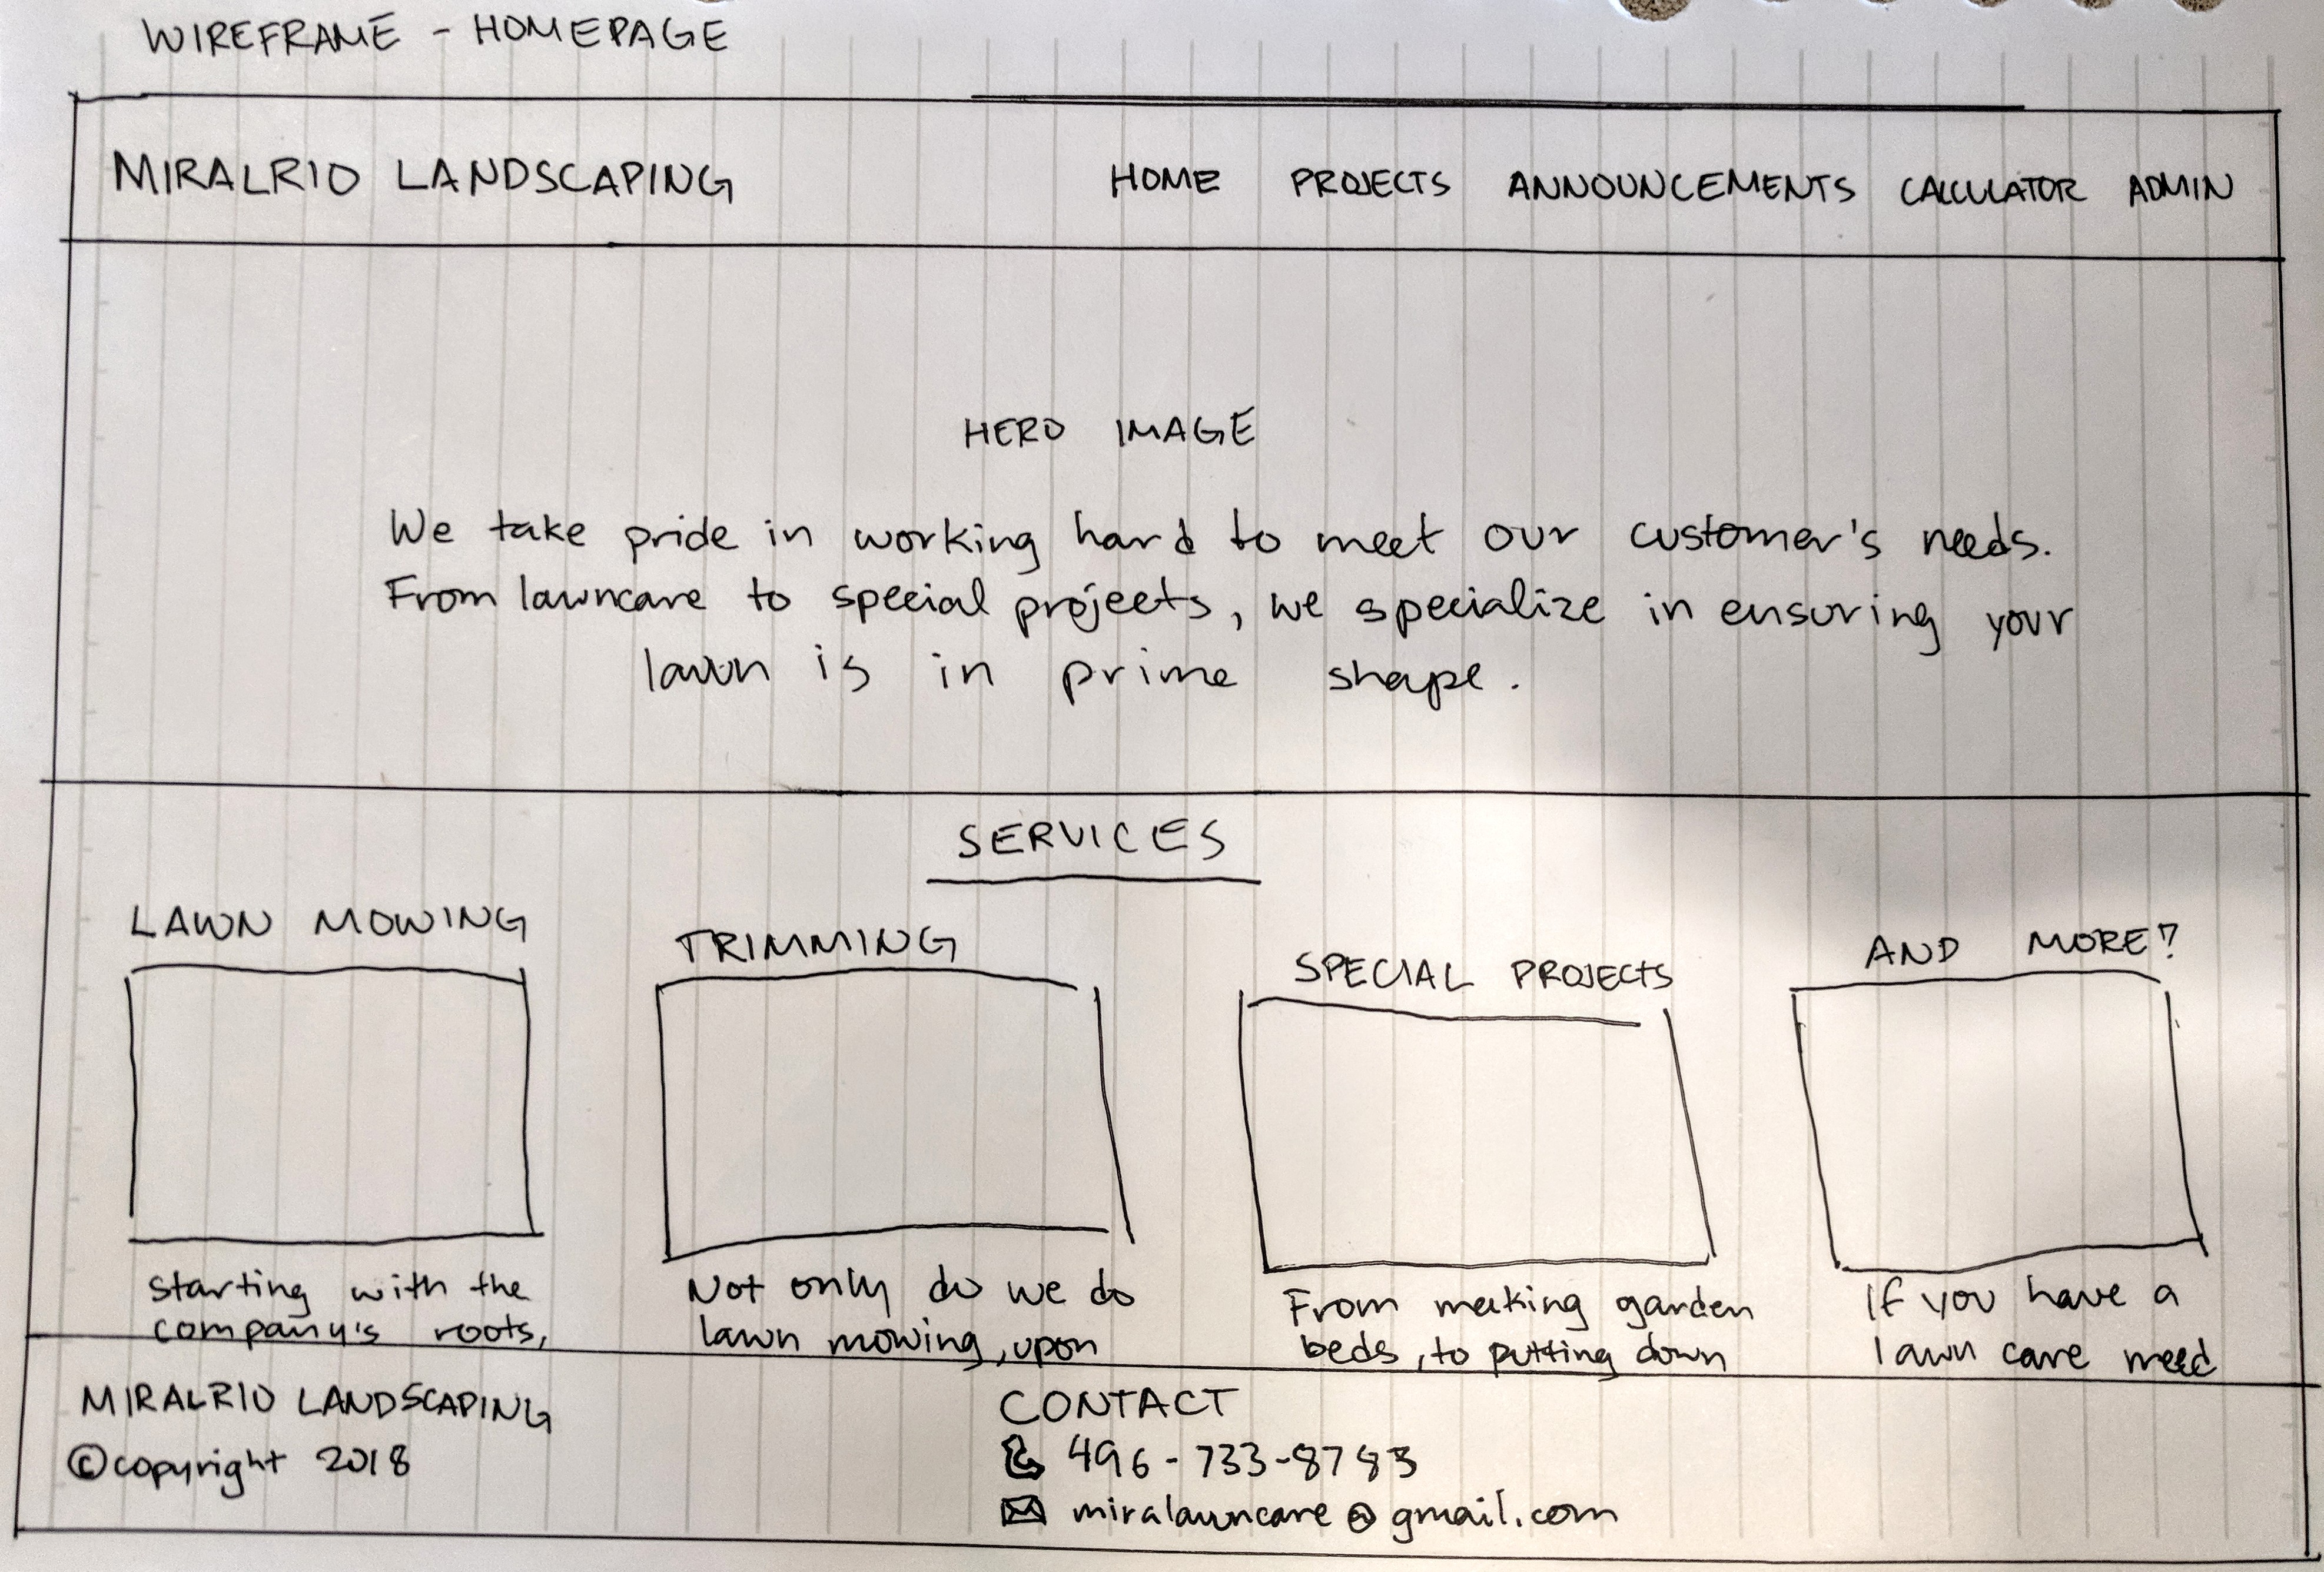 WIREFRAME - HOMEPAGE
MIRALRIO LANDSCAPING HOME PROJECTS ANNOUNCEMENTS CALCULATOR ADMIN
HERO IMAGE
We take pride in working hard to meet our customer's needs.
From lawncare to special projects, we specialize in ensuring your
lawn is in prime shape.
SERVICES
LAWN MOWING
starting with the
company's roots,
TRIMMING
Not only do we do
lawn mowing, upon
SPECIAL PROJECTS
From making garden
beds, to putting down
AND MORE?
If you have a
lawn care need
MIRALRIO LANDSCAPING
©copyright 2018
CONTACT
496-733-8783
miralawncare@gmail.com